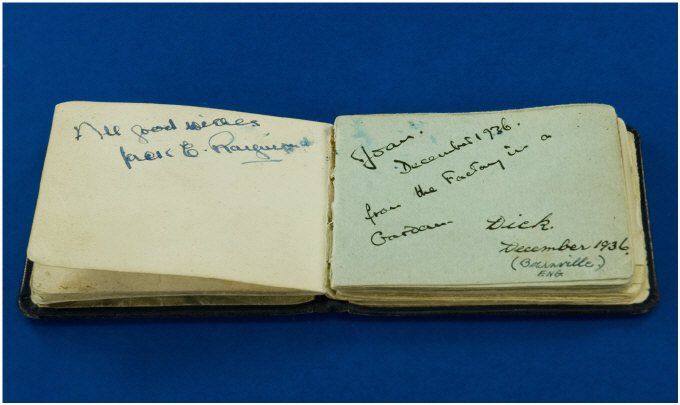 All good wishes
Jack E. Raymond
Joan.
December 1936.
from the Factory in a
Garden
Dick.
December 1936.
(Bournville)
ENG